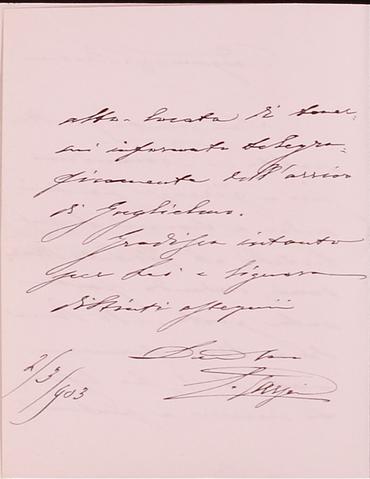 alta bontà di tener-
mi informato telegra-
ficamente dell'arrivo
di Guglielmo.
Gradisca intanto
per Lei e Signora
distinti ossequii
2/3/903